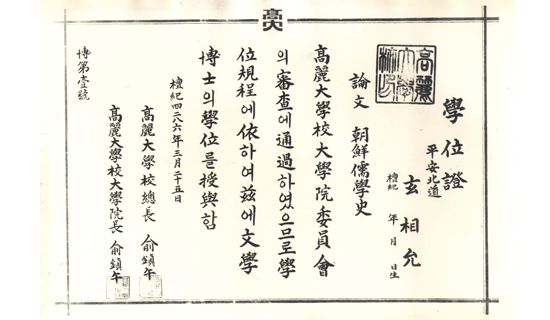 高大
學位證
平安北道
玄相允
檀紀 年 月 日生
論文 朝鮮儒學史
高麗大學校大學院委員會
의審查에通過하였으므로學
位規程에依하여玆에文學
博士의學位를授與함
檀紀四二八六年三月二十五日
高麗大學校總長 俞鎭午
高麗大學校大學院長 俞鎭午
博第壹號